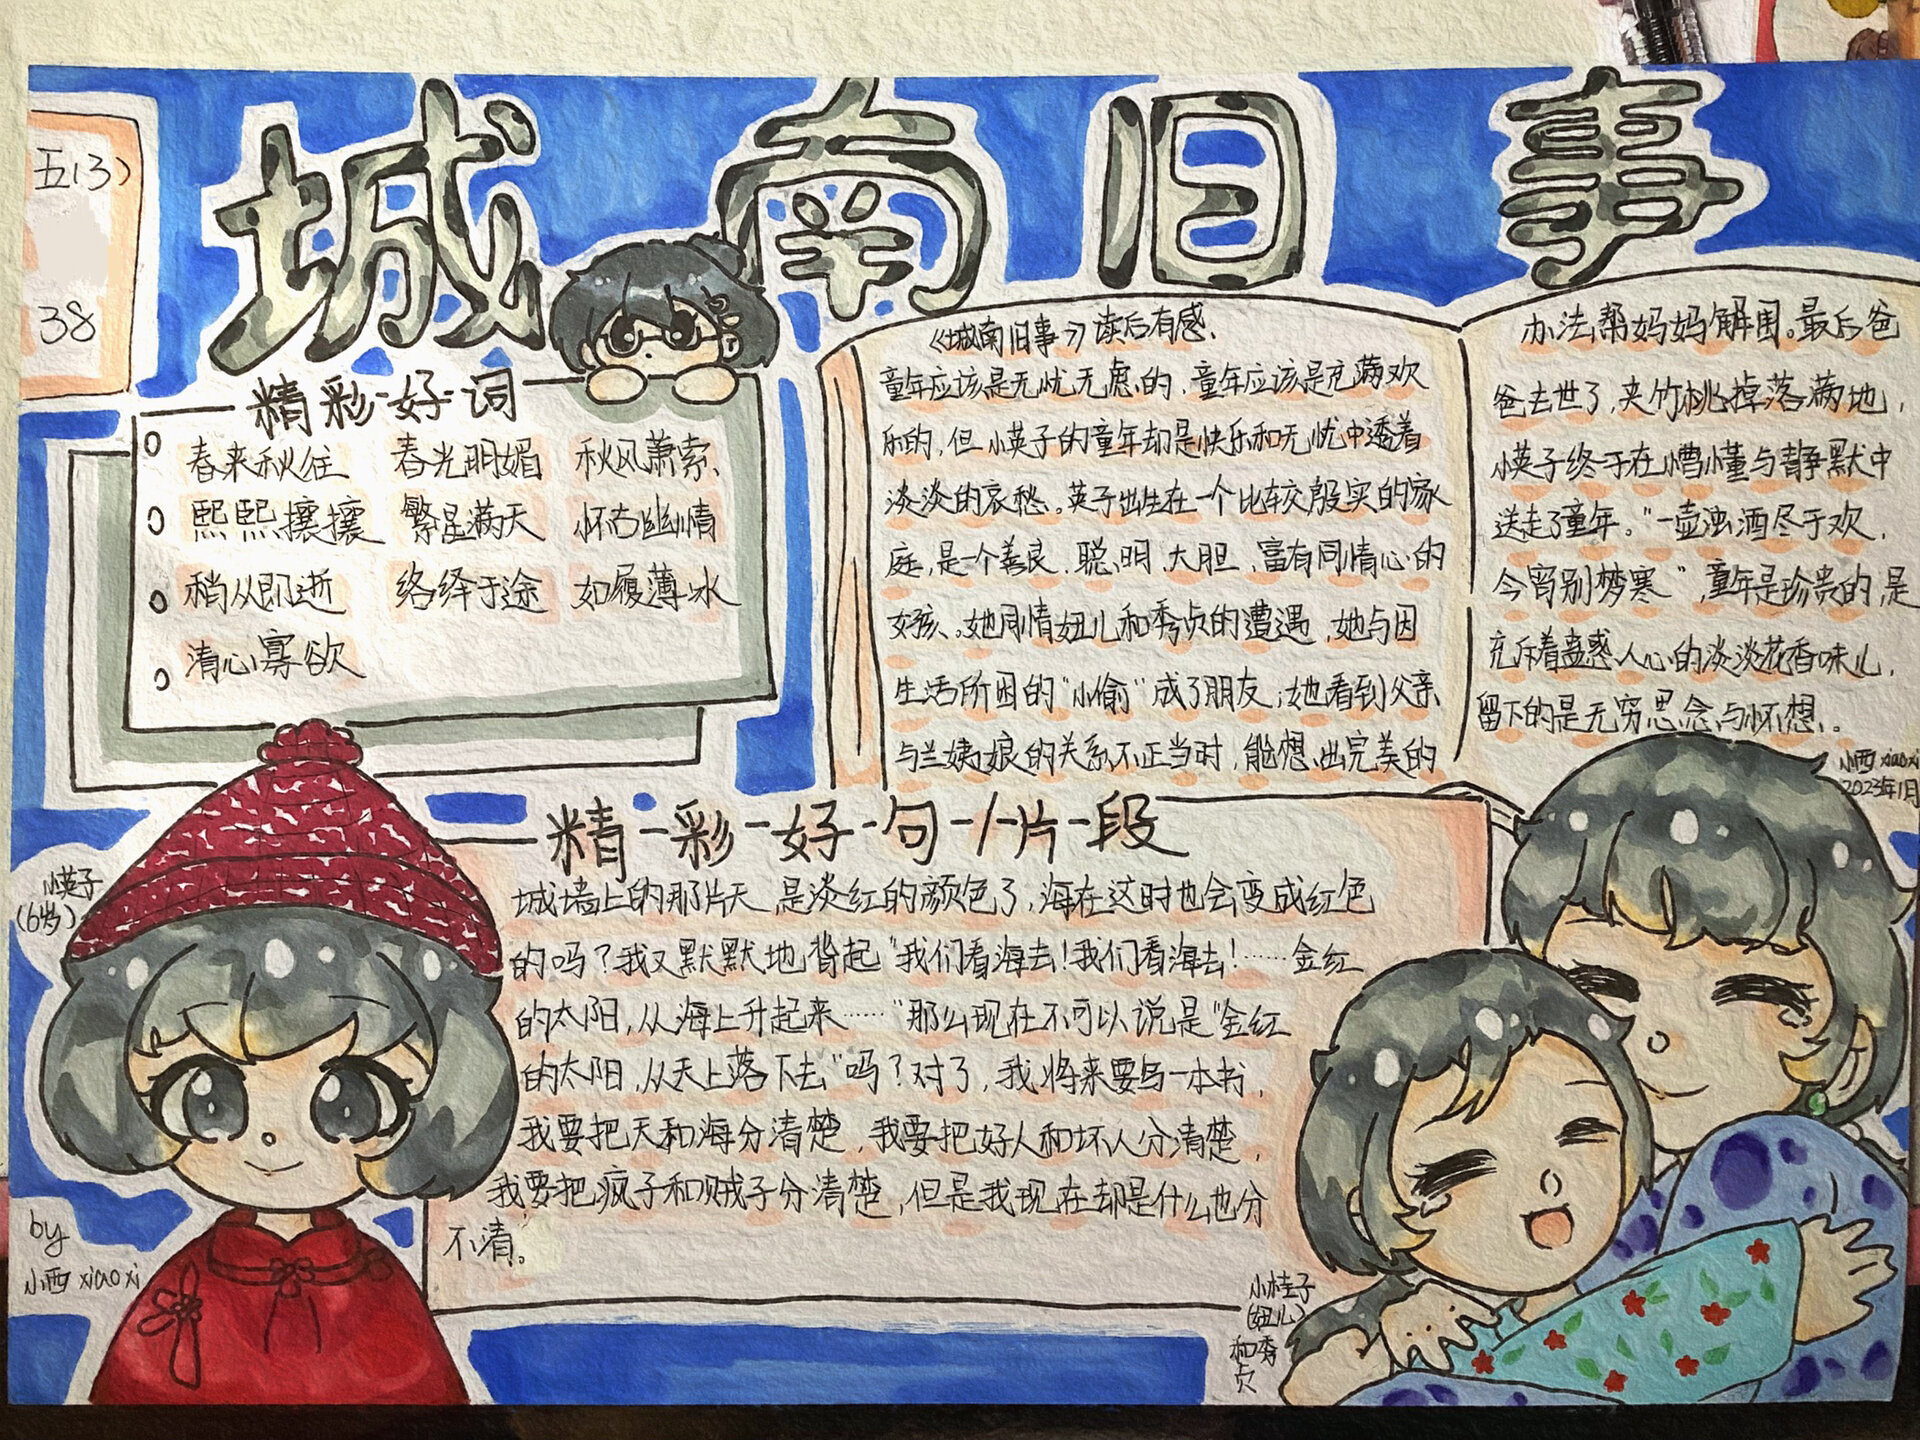 城南旧事
五(3)
38
精彩好词
春来秋往 春光明媚 秋风萧索
熙熙攘攘 繁星满天 怀古幽情
稍从即逝 络绎于途 如履薄冰
清心寡欲
《城南旧事》读后有感.
童年应该是无忧无虑的,童年应该是充满欢
乐的,但小英子的童年却是快乐和无忧中透着
淡淡的哀愁。英子出生在一个比较殷实的家
庭,是一个善良、聪明、大胆、富有同情心的
女孩、。她同情妞儿和秀贞的遭遇,她与因
生活所困的"小偷"成了朋友;她看到父亲
与兰姨娘的关系不正当时,能想出完美的
办法帮妈妈解围。最后爸
爸去世了,夹竹桃掉落满地,
小英子终于在懵懂与静默中
送走了童年。"一壶浊酒尽于欢,
今宵别梦寒",童年是珍贵的,是
充斥着蛊惑人心的淡淡花香味儿,
留下的是无穷思念与怀想。
小西 xiaoxi
2023年1月
精-彩-好-句-/-片-段
城墙上的那片天,是淡红的颜色了,海在这时也会变成红色
的吗?我又默默地背起"我们看海去!我们看海去!……金红
的太阳,从海上升起来……"那么现在不可以说是"金红
的太阳,从天上落下去"吗?对了,我将来要写一本书,
我要把天和海分清楚,我要把好人和坏人分清楚,
我要把疯子和贼子分清楚,但是我现在却是什么也分
不清。
小英子
(6岁)
by
小西 xiaoxi
小桂子
(妞儿)
和秀
贞